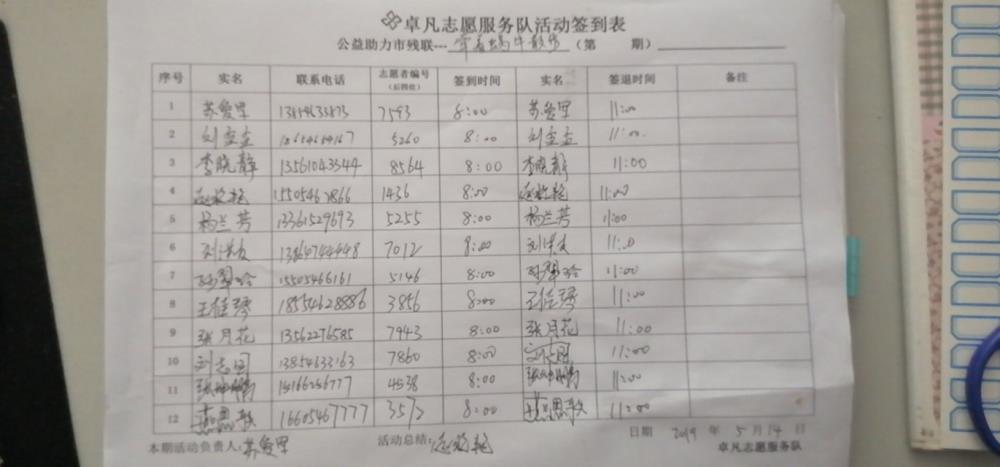 卓凡志愿服务队活动签到表
公益助力市残联---牵着蜗牛散步（第 期）
序号 实名 联系电话 志愿者编号（后四位） 签到时间 实名 签退时间 备注
1 苏爱军 7593 8:00 苏爱军 11:00
2 5260 8:00 11:00
3 李晓静 13561043344 8564 8:00 李晓静 11:00
4 1436 8:00 11:00
5 杨兰芳 13361529693 5255 8:00 杨兰芳 11:00
6 13864744448 7012 8:00 11:00
7 15505466161 5146 8:00 11:00
8 王佳琴 18554628886 3856 8:00 王佳琴 11:00
9 张月花 13562276585 7943 8:00 张月花 11:00
10 刘志国 13854633163 7860 8:00 刘志国 11:00
11 4538 8:00 11:00
12 16605467777 3572 8:00 11:00
日期 2019 年 5 月 14 日
本期活动负责人:苏爱军 活动总结: 卓凡志愿服务队